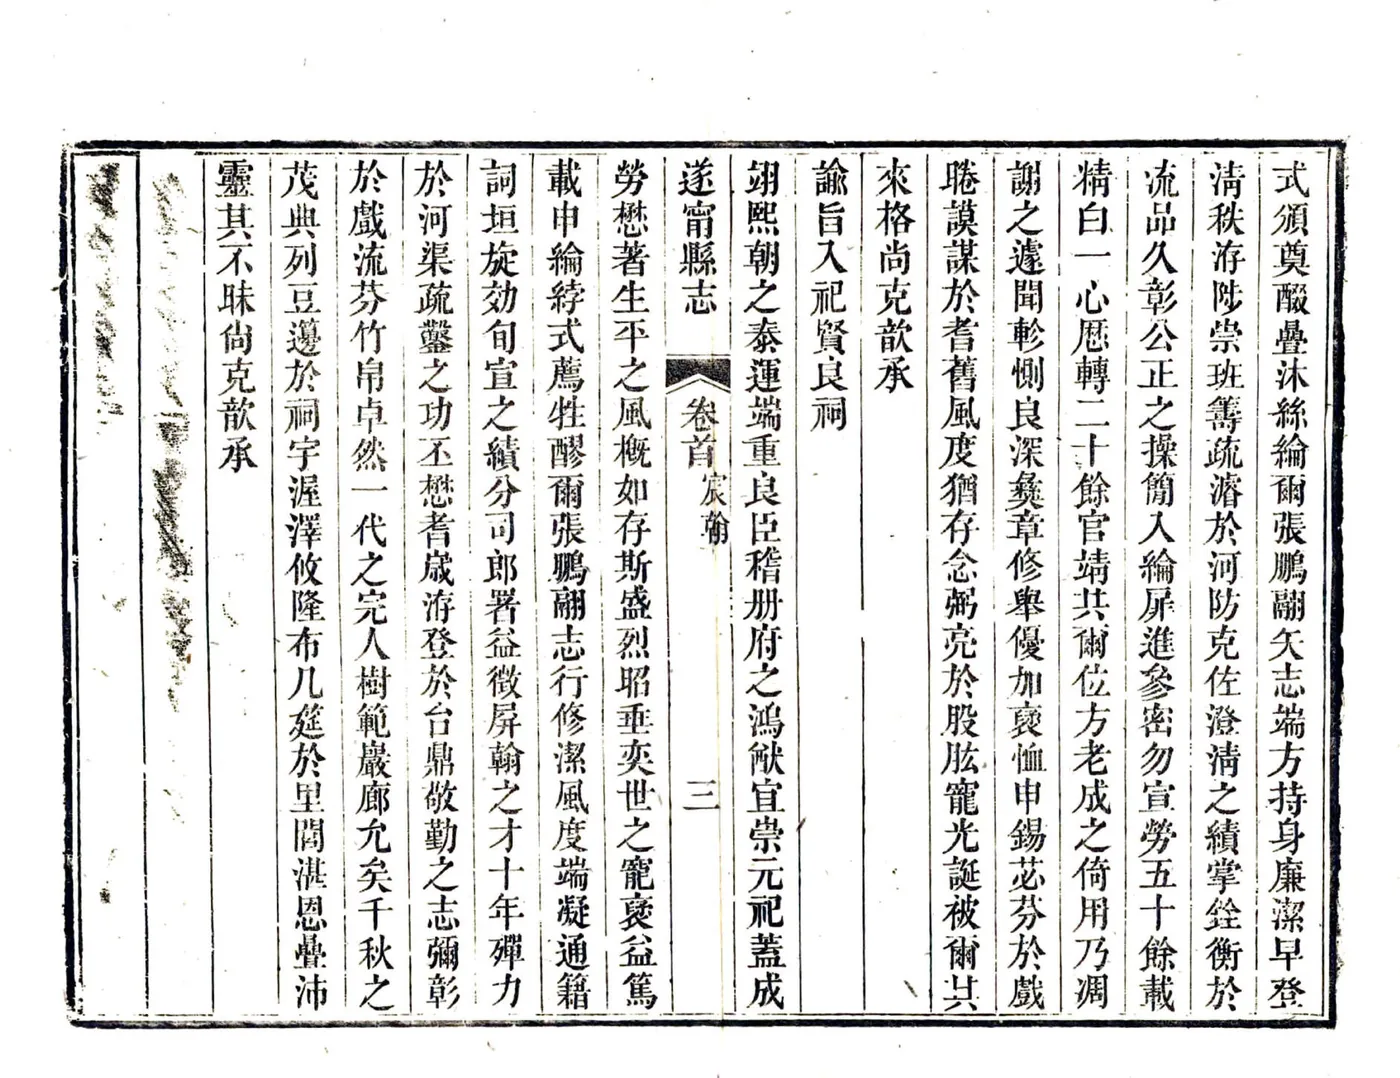 式頒奠醊疊沐絲綸爾張鵬翮矢志端方持身廉潔早登
淸秩洊陟崇班籌疏濬於河防克佐澄淸之績掌銓衡於
流品久彰公正之操簡入綸扉進參密勿宣勞五十餘載
精白一心厯轉二十餘官靖共爾位方老成之倚用乃凋
謝之遽聞軫惻良深彝章修舉優加褒恤申錫苾芬於戲
睠謨謀於耆舊風度猶存念弼亮於股肱寵光誕被爾其
來格尚克歆承
諭旨入祀賢良祠
翊熙朝之泰運端重良臣稽册府之鴻猷宜崇元祀蓋成
遂甯縣志
卷首
宸翰
三
勞懋著生平之風概如存斯盛烈昭垂奕世之寵褒益篤
載申綸綍式薦牲醪爾張鵬翮志行修潔風度端凝通籍
詞垣旋効旬宣之績分司郎署益徵屏翰之才十年殫力
於河渠疏鑿之功丕懋耆嵗洊登於台鼎敬勤之志彌彰
於戲流芬竹帛卓然一代之完人樹範巖廊允矣千秋之
茂典列豆籩於祠宇渥澤攸隆布几筵於里閭湛恩疊沛
靈其不昧尙克歆承